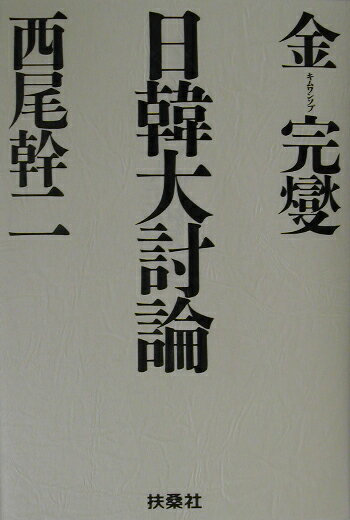 金完燮
キムワンソプ
日韓大討論
西尾幹二
扶桑社